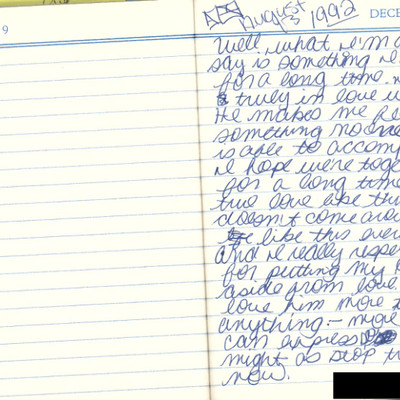 9
August 3 1992
DECE
Well, what I'm a
say is something I
for a long time.
truly in love w
He makes me fe
something no one
is able to accomp
I hope we're toge
for a long time
true love like thi
doesn't come arou
like this ever
and I really respe
for putting my
aside from love.
love him more
anything - more
can express
might as stop t
now.